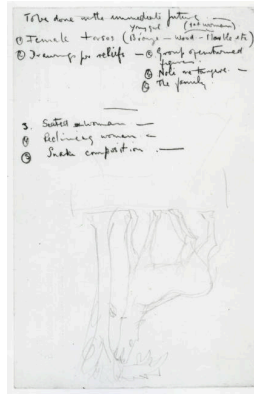 To be done in the immediate future —
young girl (old woman)
① Female torsos (Bronze — Wood — Marble etc)
② Drawings for reliefs — ③ Group of entwined
figures.
④ Note
⑤ The family
3. Seated woman —
④ Reclining woman —
⑤ Snake composition . —